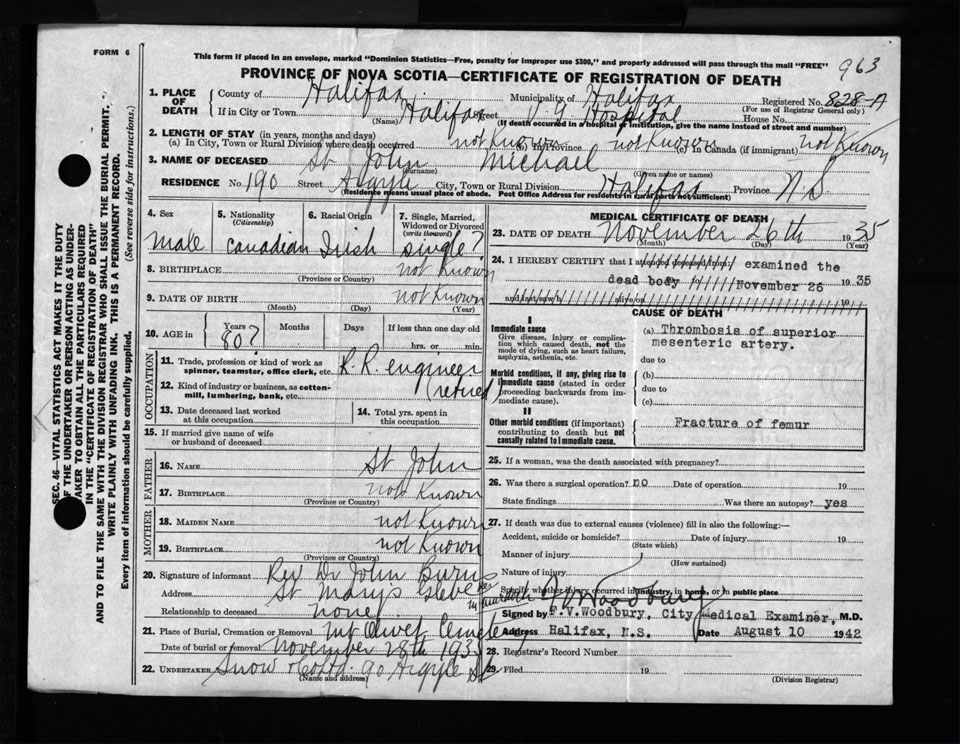 963
FORM 6
This form if placed in an envelope, marked "Dominion Statistics—Free, penalty for improper use $300," and properly addressed will pass through the mail "FREE"
PROVINCE OF NOVA SCOTIA—CERTIFICATE OF REGISTRATION OF DEATH
SEC. 46—VITAL STATISTICS ACT MAKES IT THE DUTY
OF THE UNDERTAKER OR PERSON ACTING AS UNDER-
TAKER TO OBTAIN ALL THE PARTICULARS REQUIRED
IN THE "CERTIFICATE OF REGISTRATION OF DEATH"
AND TO FILE THE SAME WITH THE DIVISION REGISTRAR WHO SHALL ISSUE THE BURIAL PERMIT.
WRITE PLAINLY WITH UNFADING INK. THIS IS A PERMANENT RECORD.
Every item of information should be carefully supplied. (See reverse side for instructions.)
1. PLACE OF DEATH County of Halifax Municipality of Halifax Registered No. 828-A
(For use of Registrar General only)
If in City or Town Halifax Street V G Hospital House No.
(Name) (If death occurred in a hospital or institution, give the name instead of street and number)
2. LENGTH OF STAY (in years, months and days)
(a) In City, Town or Rural Division where death occurred not Known (b) In Province not Known (c) In Canada (if immigrant) not Known
3. NAME OF DECEASED St John Michael
(Surname) (Given name or names)
RESIDENCE No. 190 Street Argyle City, Town or Rural Division Halifax Province N S
(Residence means usual place of abode. Post Office Address for residents in rural parts not sufficient)
4. Sex male
5. Nationality (Citizenship) Canadian
6. Racial Origin Irish
7. Single, Married, Widowed or Divorced (write the word) single?
8. BIRTHPLACE not Known
(Province or Country)
9. DATE OF BIRTH not Known
(Month) (Day) (Year)
10. AGE in Years 80? Months Days If less than one day old hrs. or min.
OCCUPATION
11. Trade, profession or kind of work as spinner, teamster, office clerk, etc. R. R. engineer
(retired)
12. Kind of industry or business, as cotton-mill, lumbering, bank, etc.
13. Date deceased last worked at this occupation
14. Total yrs. spent in this occupation.
15. If married give name of wife or husband of deceased
FATHER
16. NAME St John
17. BIRTHPLACE not Known
(Province or Country)
MOTHER
18. MAIDEN NAME not Known
19. BIRTHPLACE not Known
(Province or Country)
20. Signature of informant Rev Dr John Burns
Address St Marys Glebe
Relationship to deceased none
21. Place of Burial, Cremation or Removal Mt Olivet Cemetery
Date of burial or removal November 28th 1935
22. UNDERTAKER Snow & Co Ltd. 90 Argyle St
(Name and address)
MEDICAL CERTIFICATE OF DEATH
23. DATE OF DEATH November 26th 1935
(Month) (Day) (Year)
24. I HEREBY CERTIFY that I attended deceased from examined the
dead body November 26 1935
and last saw h alive on 19
CAUSE OF DEATH
I
Immediate cause
Give disease, injury or complication which caused death, not the mode of dying, such as heart failure, asphyxia, asthenia, etc.
(a) Thrombosis of superior
mesenteric artery.
due to
Morbid conditions, if any, giving rise to immediate cause (stated in order proceeding backwards from immediate cause).
(b)
due to
(c)
II
Other morbid conditions (if important) contributing to death but not causally related to immediate cause.
Fracture of femur
25. If a woman, was the death associated with pregnancy?
26. Was there a surgical operation? no Date of operation 19
State findings Was there an autopsy? yes
27. If death was due to external causes (violence) fill in also the following:—
Accident, suicide or homicide? Date of injury 19
(State which)
Manner of injury
(How sustained)
Nature of injury
Specify whether injury occurred in industry, in home, or in public place
Signed by F.V.Woodbury, City Medical Examiner, M.D.
Address Halifax, N.S. Date August 10 1942
28. Registrar's Record Number
29. Filed 19
(Division Registrar)